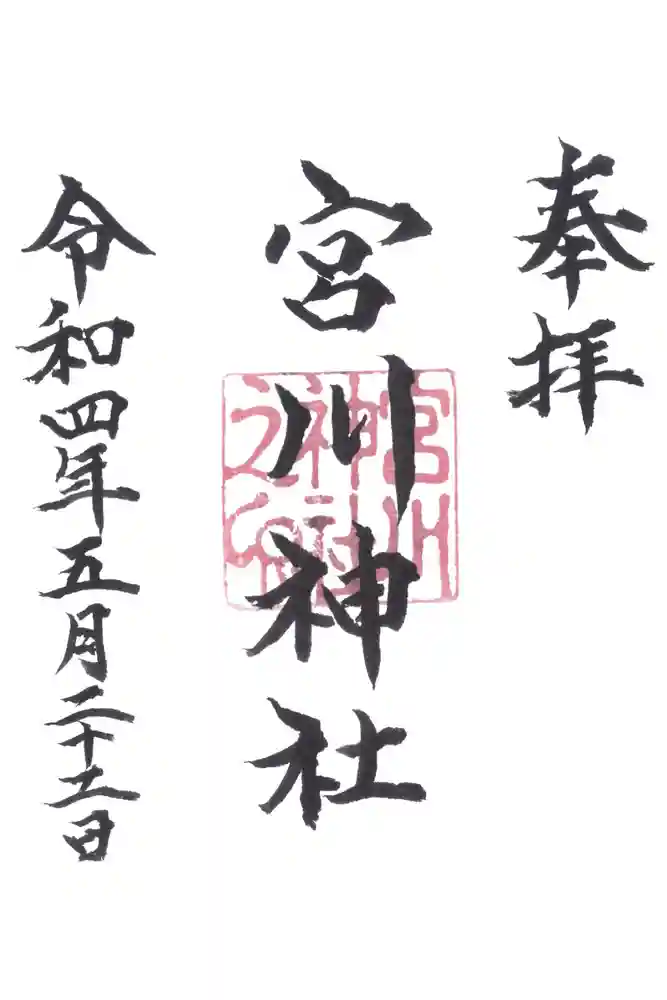 奉拝
宮川神社
令和四年五月二十二日
宮川
神社
之印